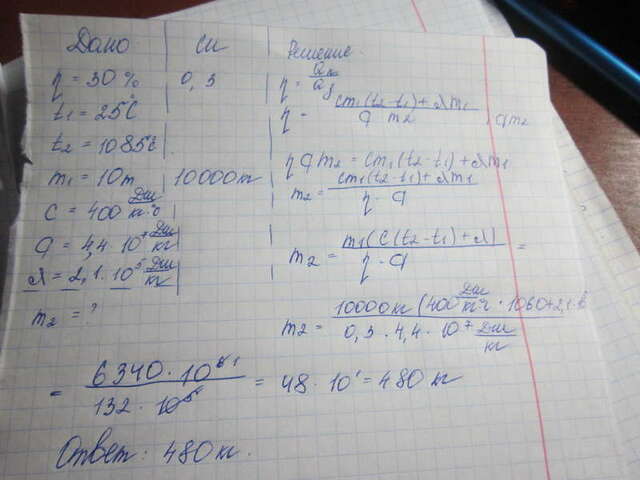 Дано СИ Решение.
η = 30% 0,3 η = Qп/Qз
t₁ = 25°C η = cm₁(t₂-t₁)+λm₁ / q m₂ , qm₂
t₂ = 1085°C.
m₁ = 10т 10000кг ηqm₂ = cm₁(t₂-t₁)+λm₁
C = 400 Дж/кг·°C m₂ = cm₁(t₂-t₁)+λm₁ / η·q
q = 4,4·10⁷ Дж/кг m₂ = m₁(C(t₂-t₁)+λ) / η·q =
λ = 2,1·10⁵ Дж/кг
m₂ = ? m₂ = 10000кг(400 Дж/кг°C · 1060+2,1· / 0,3·4,4·10⁷ Дж/кг
= 6340·10 / 132·10⁵ = 48·10¹ = 480 кг
Ответ: 480кг.